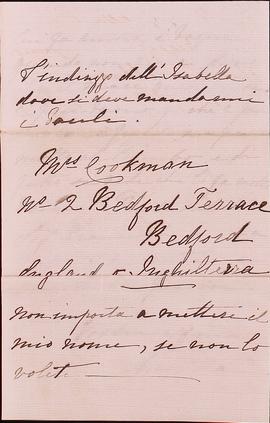 l'indirizzo dell'Isabella
dove si deve mandarmi
i
Mrs Cookman
No 2 Bedford Terrace
Bedford
England or Inghilterra
non importa a mettere il
mio nome, se non lo
volete